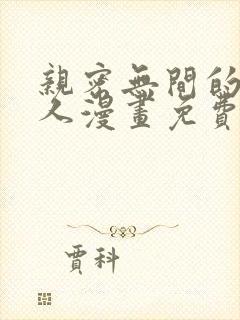 親密無間的
久漫畫免費
賈科